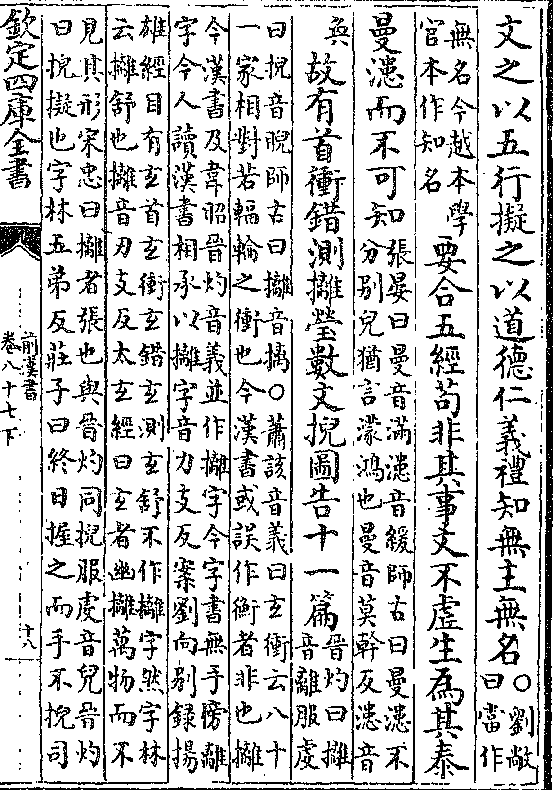 文之以五行擬之以道德仁義禮知無主無名○劉敞
曰當作
無名今越本學
官本作知名
要合五經苟非其事文不虛生為其泰
曼漶而不可知張晏曰曼音滿漶音緩師古曰曼漶不
分别皃猶言濛鴻也曼音莫幹反漶音
奐
故有首衝錯測攡瑩數文掜圖告十一篇晉灼曰攡
音離服虔
曰掜音睨師古曰攡音摛○蕭該音義曰玄衝云八十
一家相對若輻輪之衝也今漢書或誤作衡者非也攡
今漢書及韋昭晉灼音義並作攡字今字書無手傍離
字今人讀漢書相承以攡字音力支反案劉向别錄揚
雄經目有玄首玄衝玄錯玄測玄舒不作攡字然字林
云攡舒也攡音刃支反太玄經曰玄者幽攡萬物而不
見其形宋忠曰攡者張也與晉灼同掜服虔音兒晉灼
曰掜擬也字林五弟反莊子曰終日握之而手不掜司
欽定四庫全書
前漢書
卷八十七下
十八